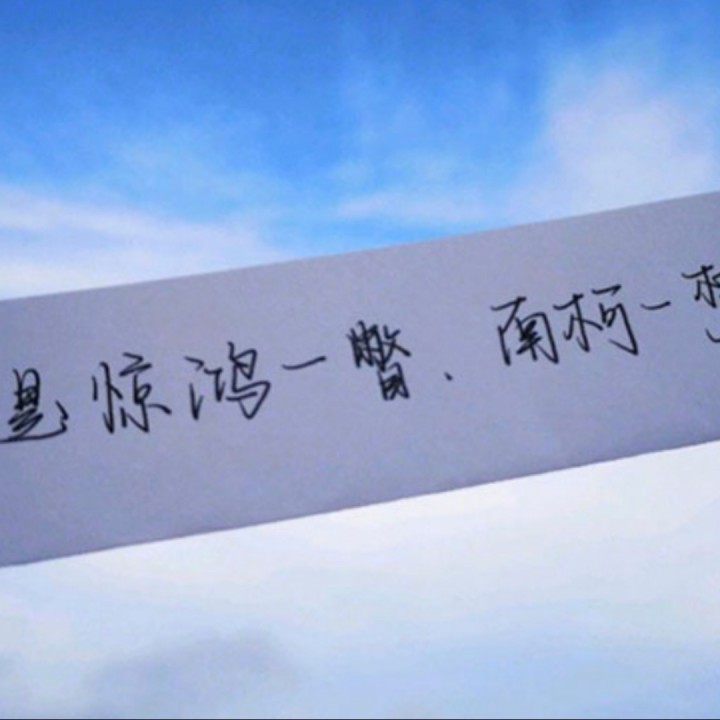 是惊鸿一瞥.南柯一梦